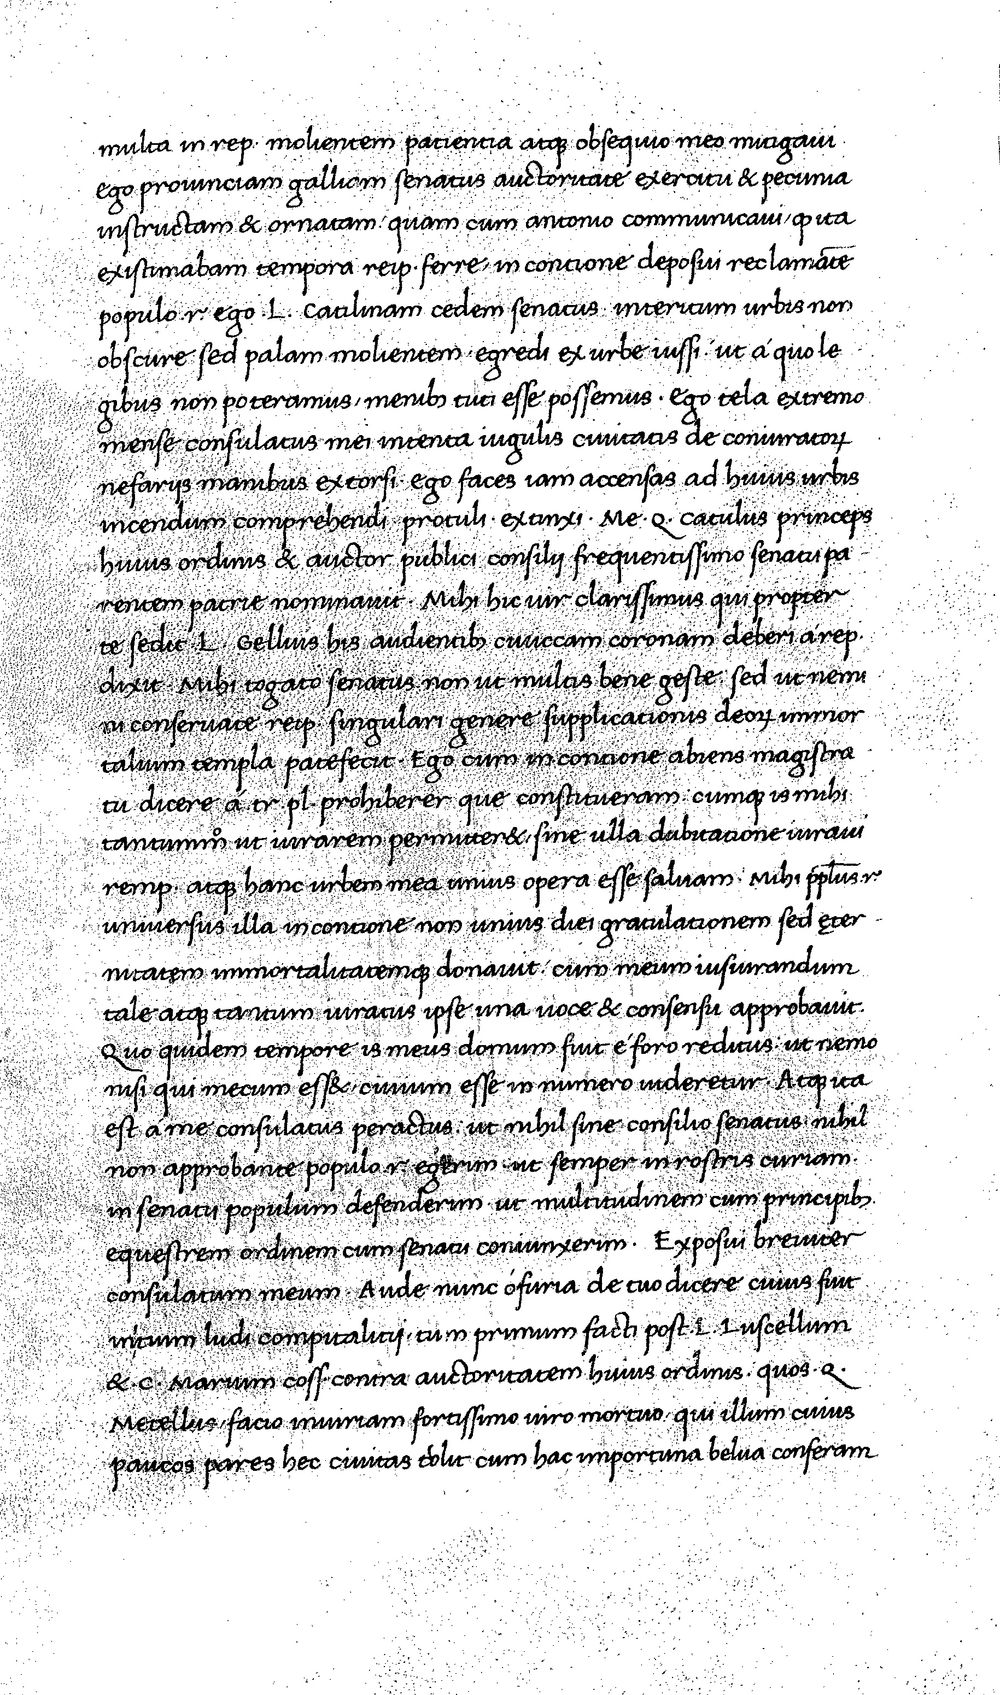 multa in rep. molientem patientia atqꝫ obsequio meo mitigaui
ego prouinciam galliam senatus auctoritate exercitu & pecunia
instructam & ornatam quam cum antonio communicaui, ꝙ ita
existimabam tempora reip. ferre, in contione deposui reclamāte
populo .r. ego .L. Catilinam cedem senatus interitum urbis non
obscure sed palam molientem egredi ex urbe iussi. ut á quo le
gibus non poteramus, menibꝫ tuti esse possemus. Ego tela extremo
mense consulatus mei intenta iugulis ciuitatis de coniuratoꝝ
nefarijs manibus extorsi. ego faces iam accensas ad huius urbis
incendum comprehendi. protuli. extinxi. Me .Q. Catulus princeps
huius ordinis & auctor publici consilij frequentissimo senatu pa
rentem patrie nominauit. Mihi hic uir clarissimus qui propter
te sedit .L. Gellius his audientibꝫ ciuiccam coronam deberi á rep.
dixit. Mihi togato senatus non ut multis bene geste. sed ut nemi
ni conseruate reip. singulari genere supplicationis deoꝝ immor
talium templa patefecit. Ego cum in contione abiens magistra
tu dicere á tr. pl. prohiberer que constitueram. cumqꝫ is mihi
tantummͦ ut iurarem permitter&. sine ulla dubitatione iuraui
remp. atqꝫ hanc urbem mea unius opera esse saluam. Mihi p̄pl̄us .r.
uniuersus illa in contione non unius diei gratulationem sed ęter
nitatem immortalitatemqꝫ donauit. cum meum iusiurandum
tale atqꝫ tantum iuratus ipse una uoce & consensu approbauit.
Quo quidem tempore is meus domum fuit é foro reditus. ut nemo
nisi qui mecum ess& ciuium esse in numero uideretur. Atqꝫ ita
est a me consulatus peractus. ut nihil sine consilio senatus nihil
non approbante populo .r. egerim. ut semper in rostris curiam.
in senatu populum defenderim ut multitudinem cum principibꝫ.
equestrem ordinem cum senatu coniunxerim. Exposui breuiter
consulatum meum. Aude nunc ó furia de tuo dicere cuius fuit
initium ludi compitalitij. tum primum facti post .L. Luscellum
& .C. Marium coss. contra auctoritatem huius ordinis. quos .Q.
Metellus, facio iniuriam fortissimo uiro mortuo, qui illum cuius
paucos pares hec ciuitas tolit cum hac importuna belua conferam